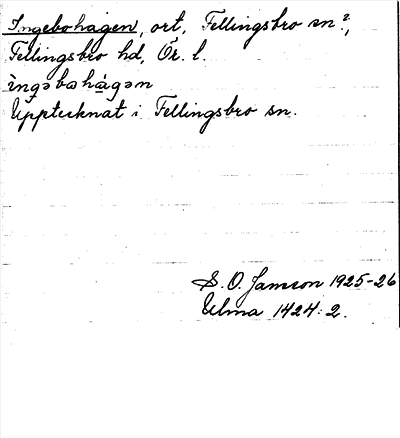 Ingebohagen, ort, Fellingsbro sn?,
Fellingsbro hd, Ör. l.
ìngəbωhágən
Upptecknat i Fellingsbro sn.
S. O. Jansson 1925-26
Ulma 1424:2.